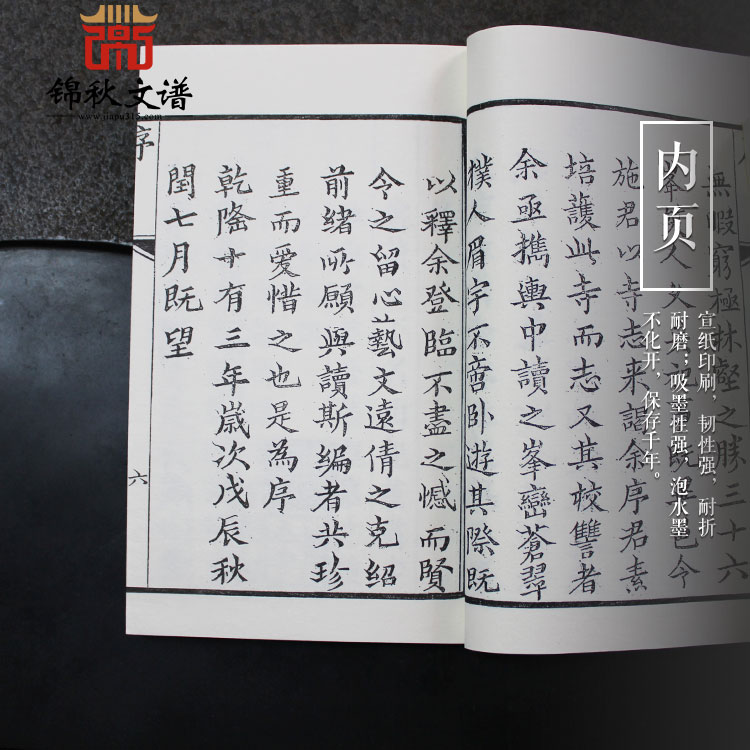 锦秋文谱
www.jiapu315.com
内页
宣纸印刷，韧性强，耐折
耐磨；吸墨性强，泡水墨
不化开，保存千年。
無暇窮極林壑之勝三十六
人文
既
已今
施君以寺志来謁余序君素
培護此寺而志又其校讐者
余亟攜輿中讀之峯巒蒼翠
撲人眉宇不啻卧遊其際既
以釋余登臨不盡之憾而賢
令之留心藝文遠倩之克紹
前緒所願與讀斯編者共珍
重而愛惜之也是為序
乾隆十有三年歲次戊辰秋
閏七月既望
序
六